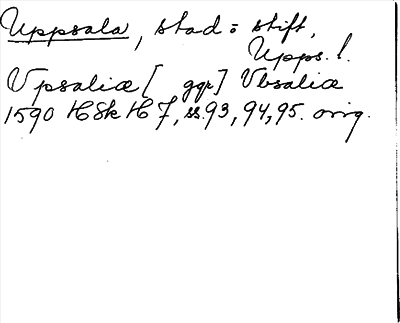 Uppsala, stad o stift,
Upps. l.
Vpsaliæ [ ggr] Vbsaliæ
1590 HSkH 7, ss. 93, 94, 95. orig.